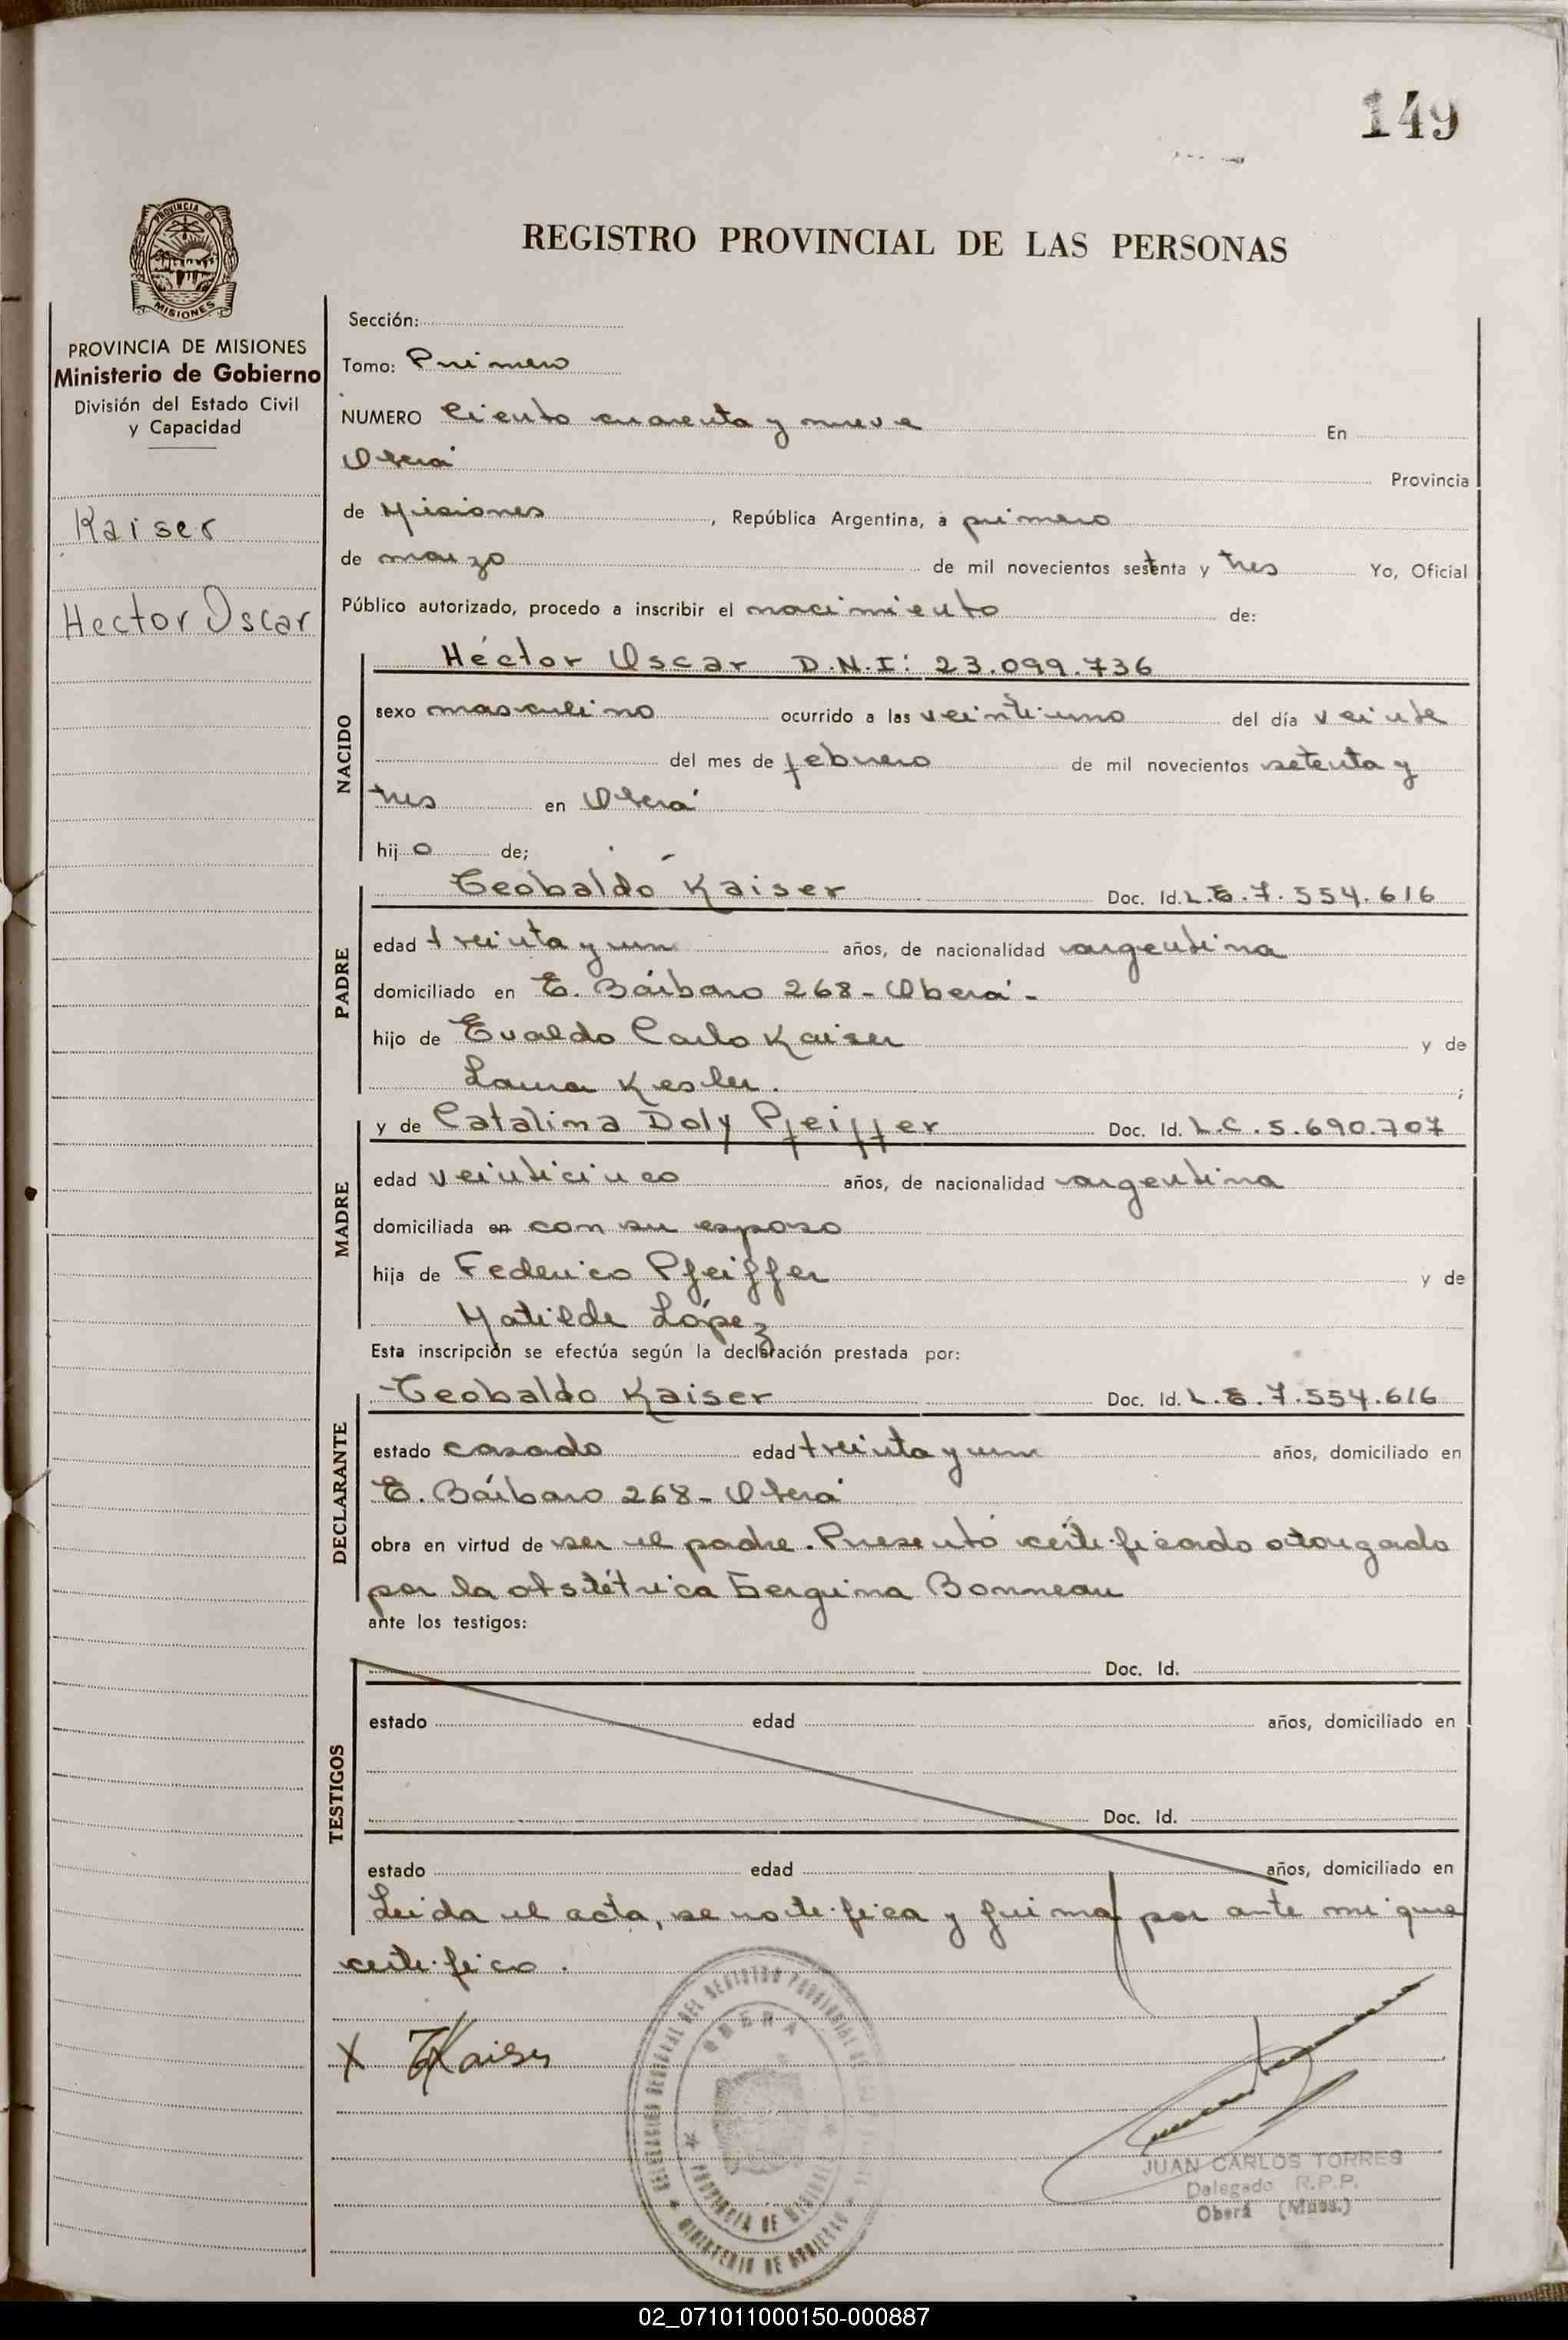 149
PROVINCIA DE
MISIONES
REGISTRO PROVINCIAL DE LAS PERSONAS
PROVINCIA DE MISIONES
Ministerio de Gobierno
División del Estado Civil
y Capacidad
Kaiser
Hector Oscar
Sección:
Tomo: Primero
NUMERO Ciento cuarenta y nueve En
Oberá Provincia
de Misiones, República Argentina, a primero
de marzo de mil novecientos setenta y tres Yo, Oficial
Público autorizado, procedo a inscribir el nacimiento de:
NACIDO
Héctor Oscar D.N.I: 23.099.736
sexo masculino ocurrido a las veintiuno del día veinte
del mes de febrero de mil novecientos setenta y
tres en Oberá
hijo de;
PADRE
Teobaldo Kaiser Doc. Id. L.E. 7.554.616
edad treinta y un años, de nacionalidad argentina
domiciliado en E. Bárbaro 268 - Oberá -
hijo de Evaldo Carlo Kaiser y de
Laura Kesler. ;
MADRE
y de Catalina Doly Pfeiffer Doc. Id. L.C. 5.690.707
edad veinticinco años, de nacionalidad argentina
domiciliada en con su esposo
hija de Federico Pfeiffer y de
Matilde López
Esta inscripción se efectúa según la declaración prestada por:
DECLARANTE
Teobaldo Kaiser Doc. Id. L.E. 7.554.616
estado casado edad treinta y un años, domiciliado en
E. Bárbaro 268 - Oberá
obra en virtud de ser el padre. Presentó certificado otorgado
por la obstétrica Berguina Bonneau
ante los testigos:
TESTIGOS
Doc. Id.
estado edad años, domiciliado en
Doc. Id.
estado edad años, domiciliado en
Leida el acta, se notifica y firma por ante mi que
certifico.
X TKaiser
OBERA
PROVINCIA DE MISIONES
MINISTERIO DE GOBIERNO
JUAN CARLOS TORRES
Delegado R.P.P.
Oberá (Mnes.)
02_071011000150-000887